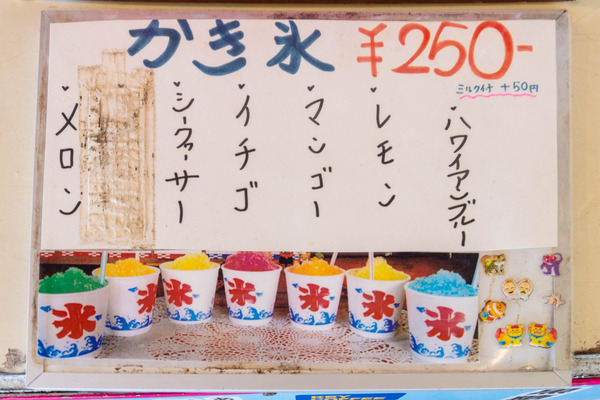 かき氷 ¥250-
ミルクイチ +50円
ハワイアンブルー
レモン
マンゴー
イチゴ
シークァーサー
メロン
氷
氷
氷
氷
氷
氷
氷